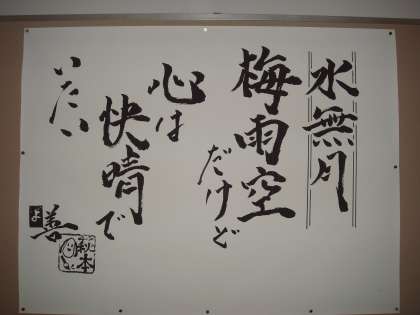 水無月
梅雨空
だけど
心は
快晴で
いたい
善
よ
萩本